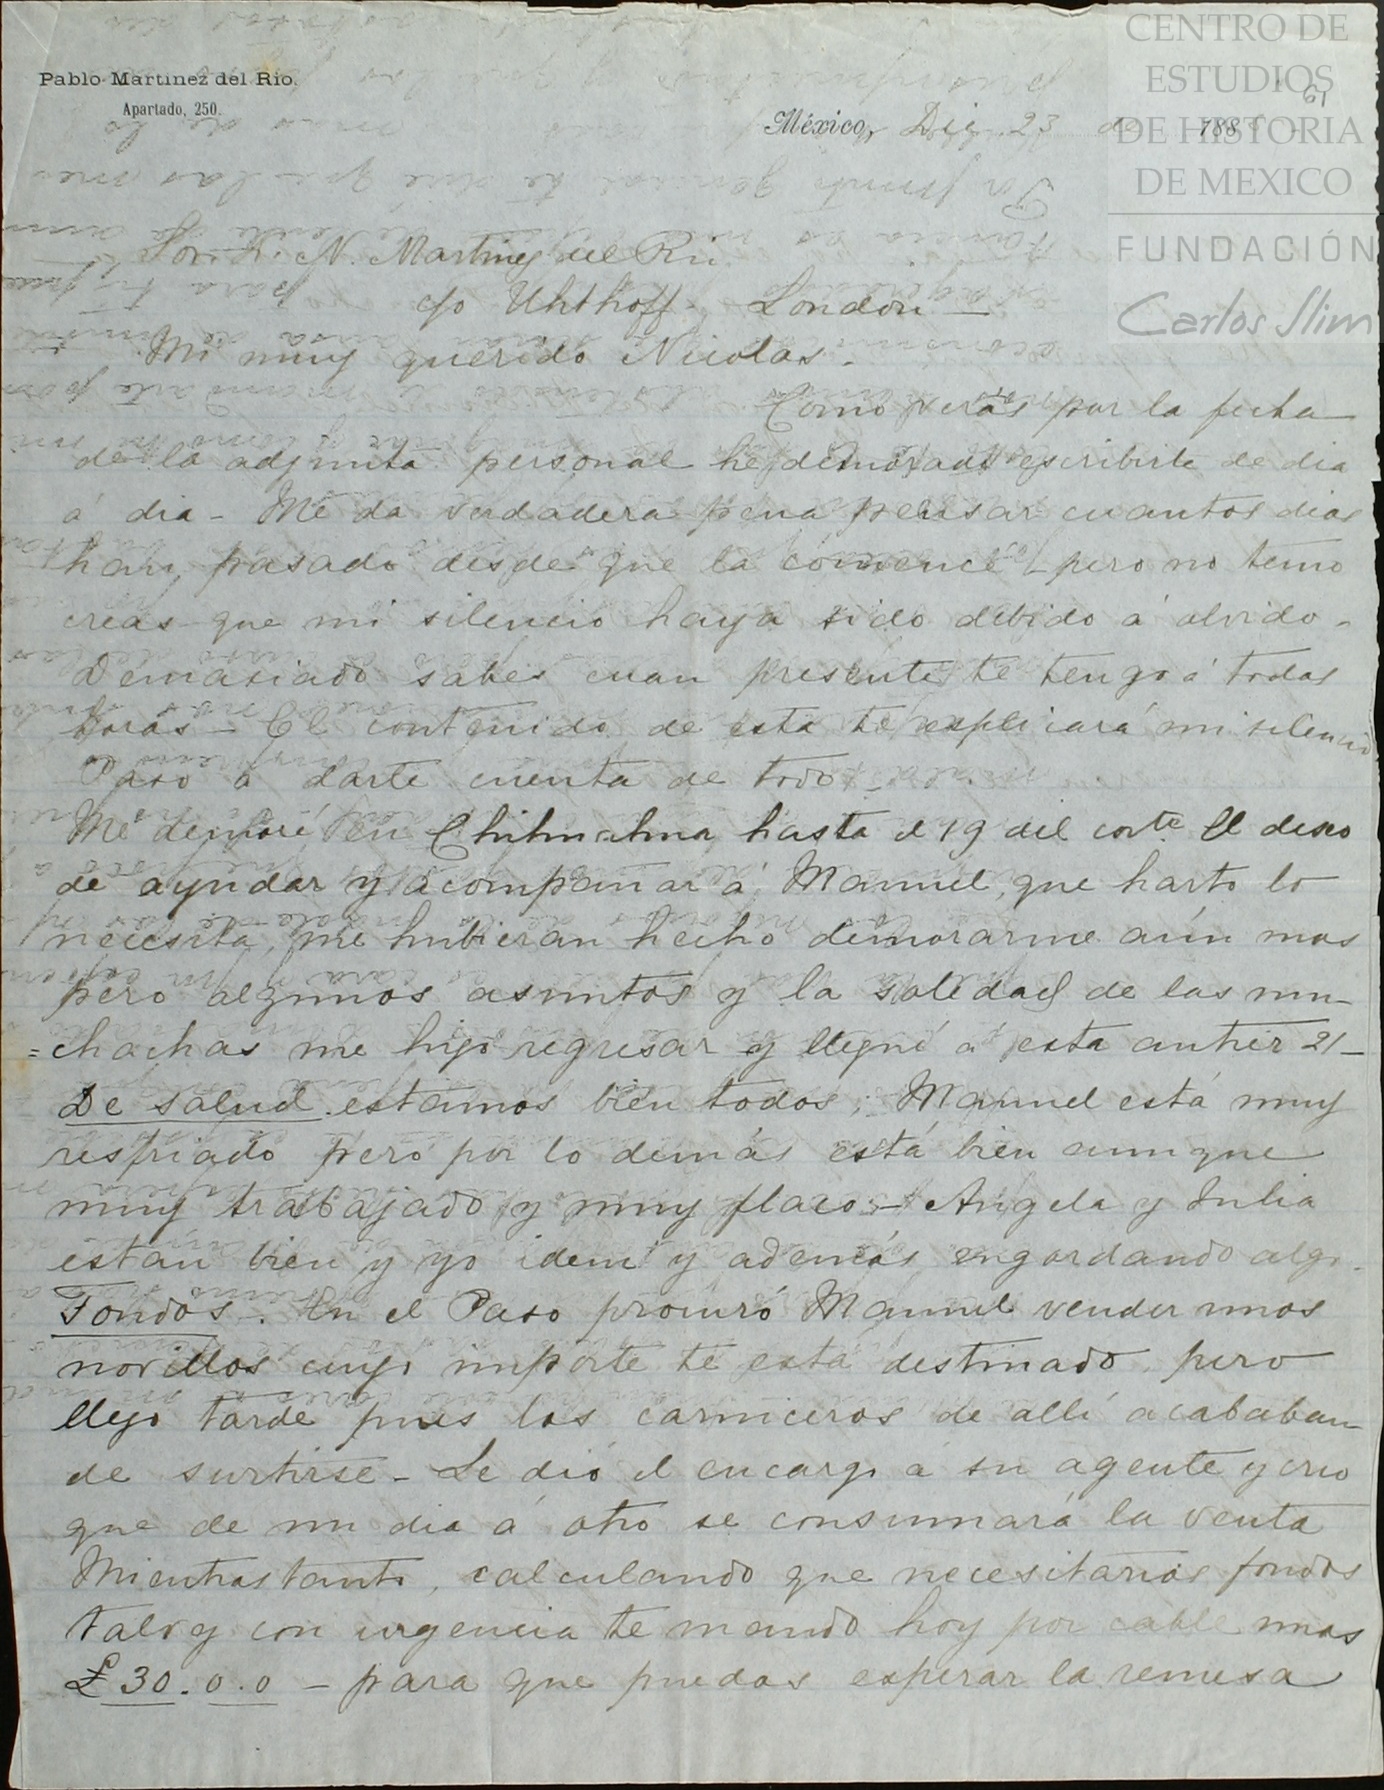 CENTRO DE
ESTUDIOS
DE HISTORIA
DE MEXICO
FUNDACIÓN
Carlos Slim
Pablo Martinez del Rio.
Apartado, 250.
61
México, Dic 23 de 188
Sor. D. N. Martinez del Rio
c/o Uhthoff. London —
Mi muy querido Nicolas.
Como verás por la fecha
de la adjunta personal he demorado escribirte de dia
á dia - Me da verdadera pena pensar cuantos dias
han pasado desde que la comencé - pero no temo
creas que mi silencio haya sido debido á olvido.
Demasiado sabes cuan presente te tengo á todas
horas - El contenido de esta te esplicará mi silencio
Paso a darte cuenta de todo -
Me demoré en Chihuahua hasta el 19 del corte El deseo
de ayudar y acompañar á Manuel, que harto lo
necesita, me hubieran hecho demorarme aún mas
pero algunos asuntos y la soledad de las mu-
=chachas me hizo regresar y llegué á esta antier 21 -
De salud estamos bien todos; Manuel está muy
resfriado pero por lo demás está bien aunque
muy trabajado y muy flaco - Angela y Julia
estan bien y yo idem y además engordando algo.
Fondos -. En el Paso procuró Manuel vender unos
novillos cuyo importe te está destinado, pero
llegó tarde pues los carniceros de allí acababan
de surtirse - Le dió el encargo á su agente y creo
que de un dia á otro se consumará la venta
Mientrastanto, calculando que necesitarias fondos
talvez con urgencia te mando hoy por cable unas
£30.0.0 - para que puedas esperar la remesa